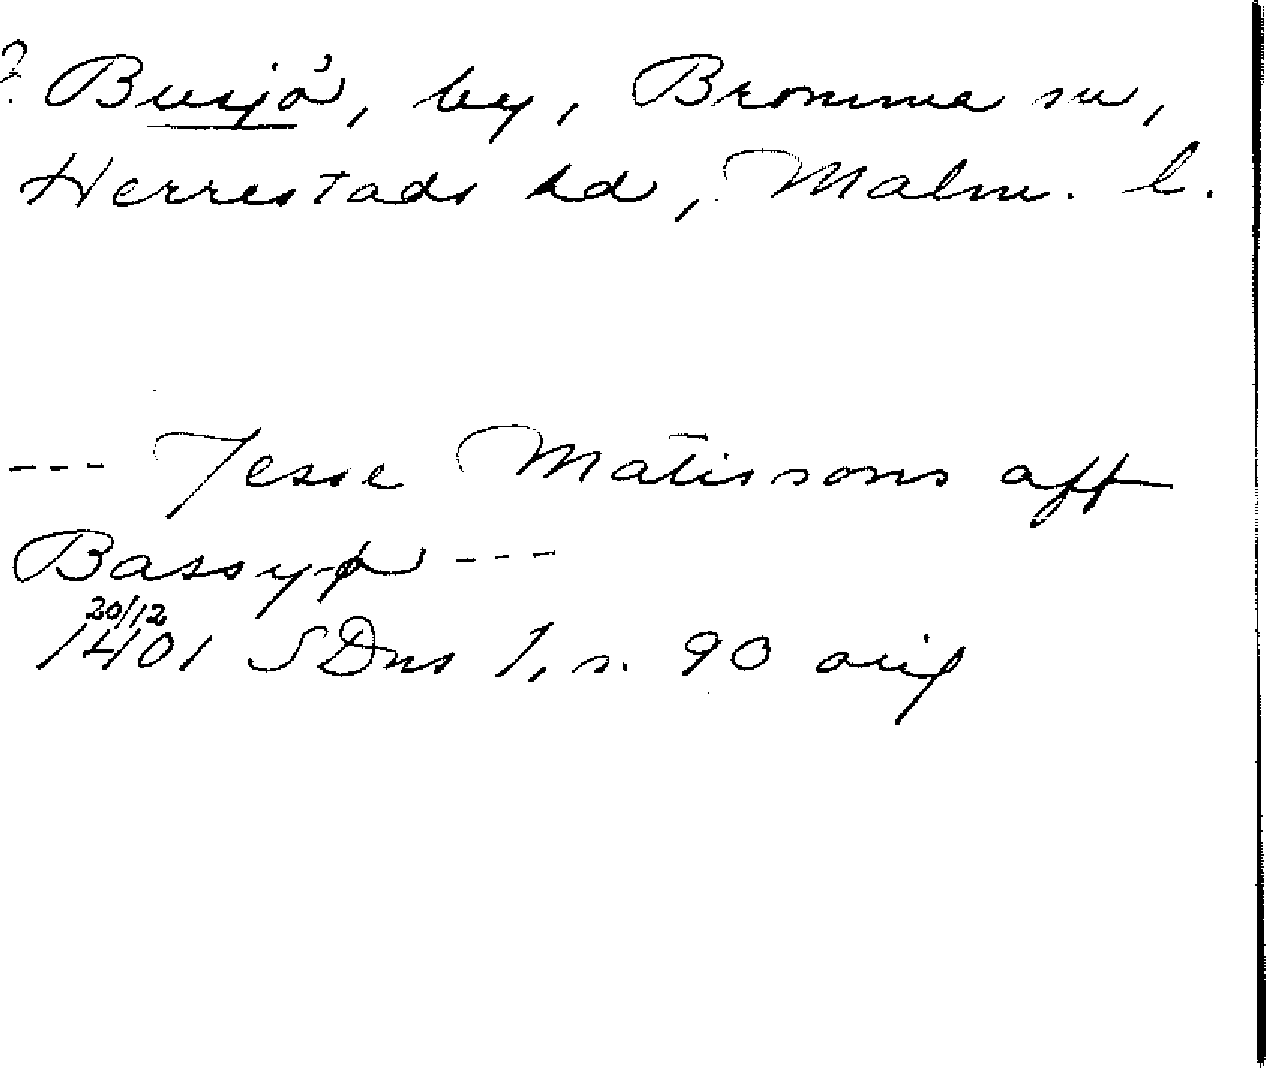 ? Busjö, by, Bromma sn,
Herrestads hd, Malm. l.
--- Jesse Matissøns aff
Bassyø ---
20/12
1401 SDns 1, s. 90 orig